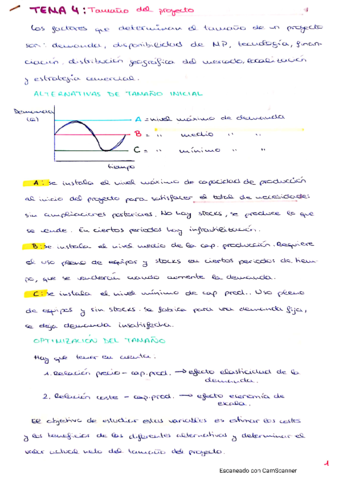 TEMA 4: Tamaño del proyecto
1
Los factores que determinan el tamaño de un proyecto
son: demanda, disponibilidad de MP, tecnología, finan-
ciación, distribución geográfica del mercado, localización
y estrategia comercial.
ALTERNATIVAS DE TAMAÑO INICIAL
Demanda
(Q)
A = nivel máximo de demanda
B = " medio " "
C = " mínimo " "
tiempo
A. Se instala el nivel máximo de capacidad de producción
al inicio del proyecto para satisfacer el total de necesidades
sin ampliaciones posteriores. No hay stocks, se produce lo que
se vende. En ciertos periodos hay infrautilización.
B. Se instala el nivel medio de la cap. producción. Requiere
el uso pleno de equipos y stocks en ciertos periodos de tiem-
po, que se venderán cuando aumente la demanda.
C. Se instala el nivel mínimo de cap prod.. Uso pleno
de equipos y sin stocks. Se fabrica para una demanda fija,
se deja demanda insatisfecha.
OPTIMIZACIÓN DEL TAMAÑO
Hay que tener en cuenta:
1. Relación precio - cap.prod. → efecto elasticidad de la
demanda.
2. Relación coste - cap.prod → efecto economía de
escala.
El objetivo de estudiar estas variables es estimar los costes
y los beneficios de las diferentes alternativas y determinar el
valor actual neto del tamaño del proyecto.
1
Escaneado con CamScanner